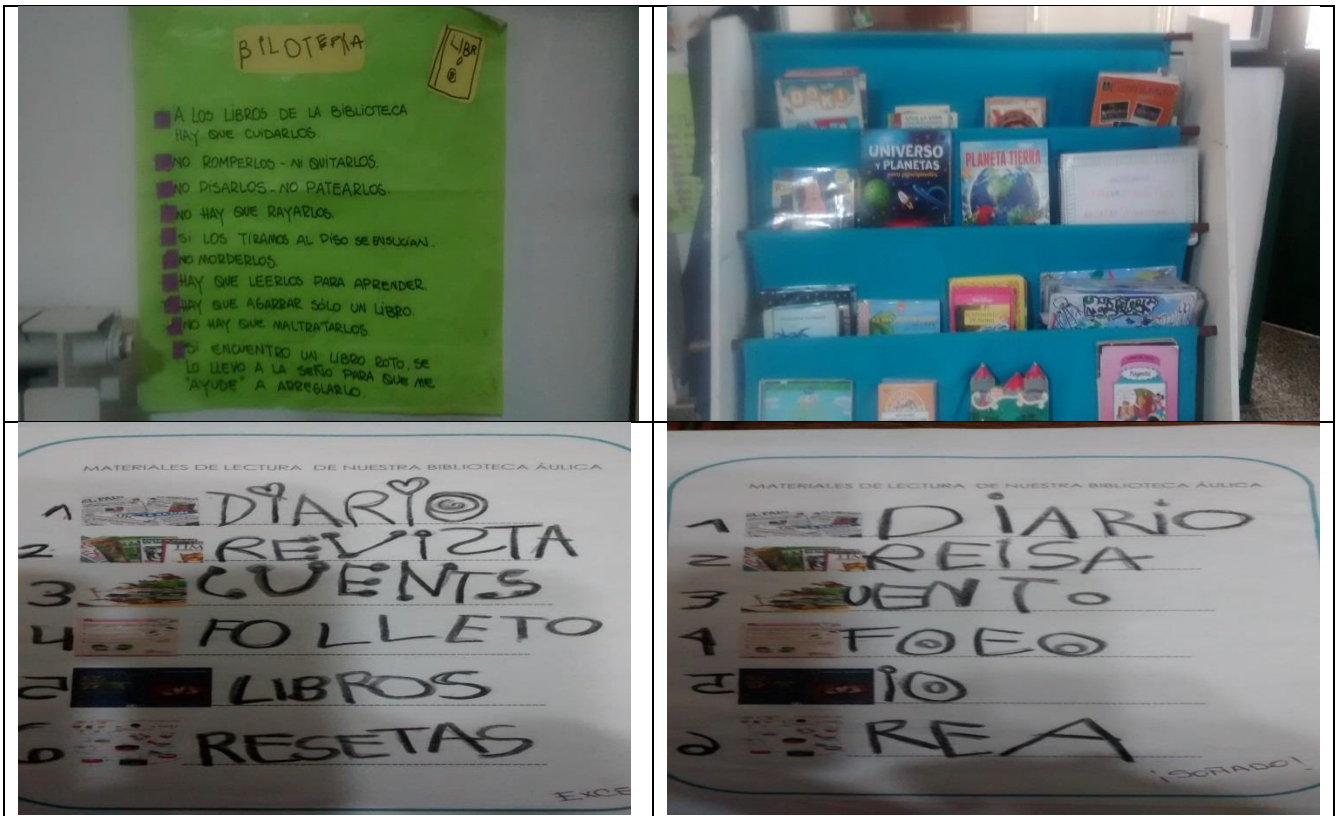 BILOTEFKA
LIBR
O
A LOS LIBROS DE LA BIBLIOTECA
HAY QUE CUIDARLOS.
NO ROMPERLOS - NI QUITARLOS.
NO PISARLOS - NO PATEARLOS.
NO HAY QUE RAYARLOS.
SI LOS TIRAMOS AL PISO SE ENSUCIAN.
NO MORDERLOS.
HAY QUE LEERLOS PARA APRENDER.
HAY QUE AGARRAR SÓLO UN LIBRO.
NO HAY QUE MALTRATARLOS
SI ENCUENTRO UN LIBRO ROTO, SE
LO LLEVO A LA SEÑO PARA QUE ME
"AYUDE" A ARREGLARLO
UNIVERSO
Y PLANETAS
para principiantes
PLANETA TIERRA
MATERIALES DE LECTURA DE NUESTRA BIBLIOTECA ÁULICA
EL PAIS
1 DIARIO
2 REVISTA
3 CUENTS
4 FOLLETO
5 LIBROS
6 RESETAS
EXCE
MATERIALES DE LECTURA DE NUESTRA BIBLIOTECA ÁULICA
1 DIARIO
2 REISA
3 UENTO
4 FOEO
5 IO
6 REA
¡SOÑADO!